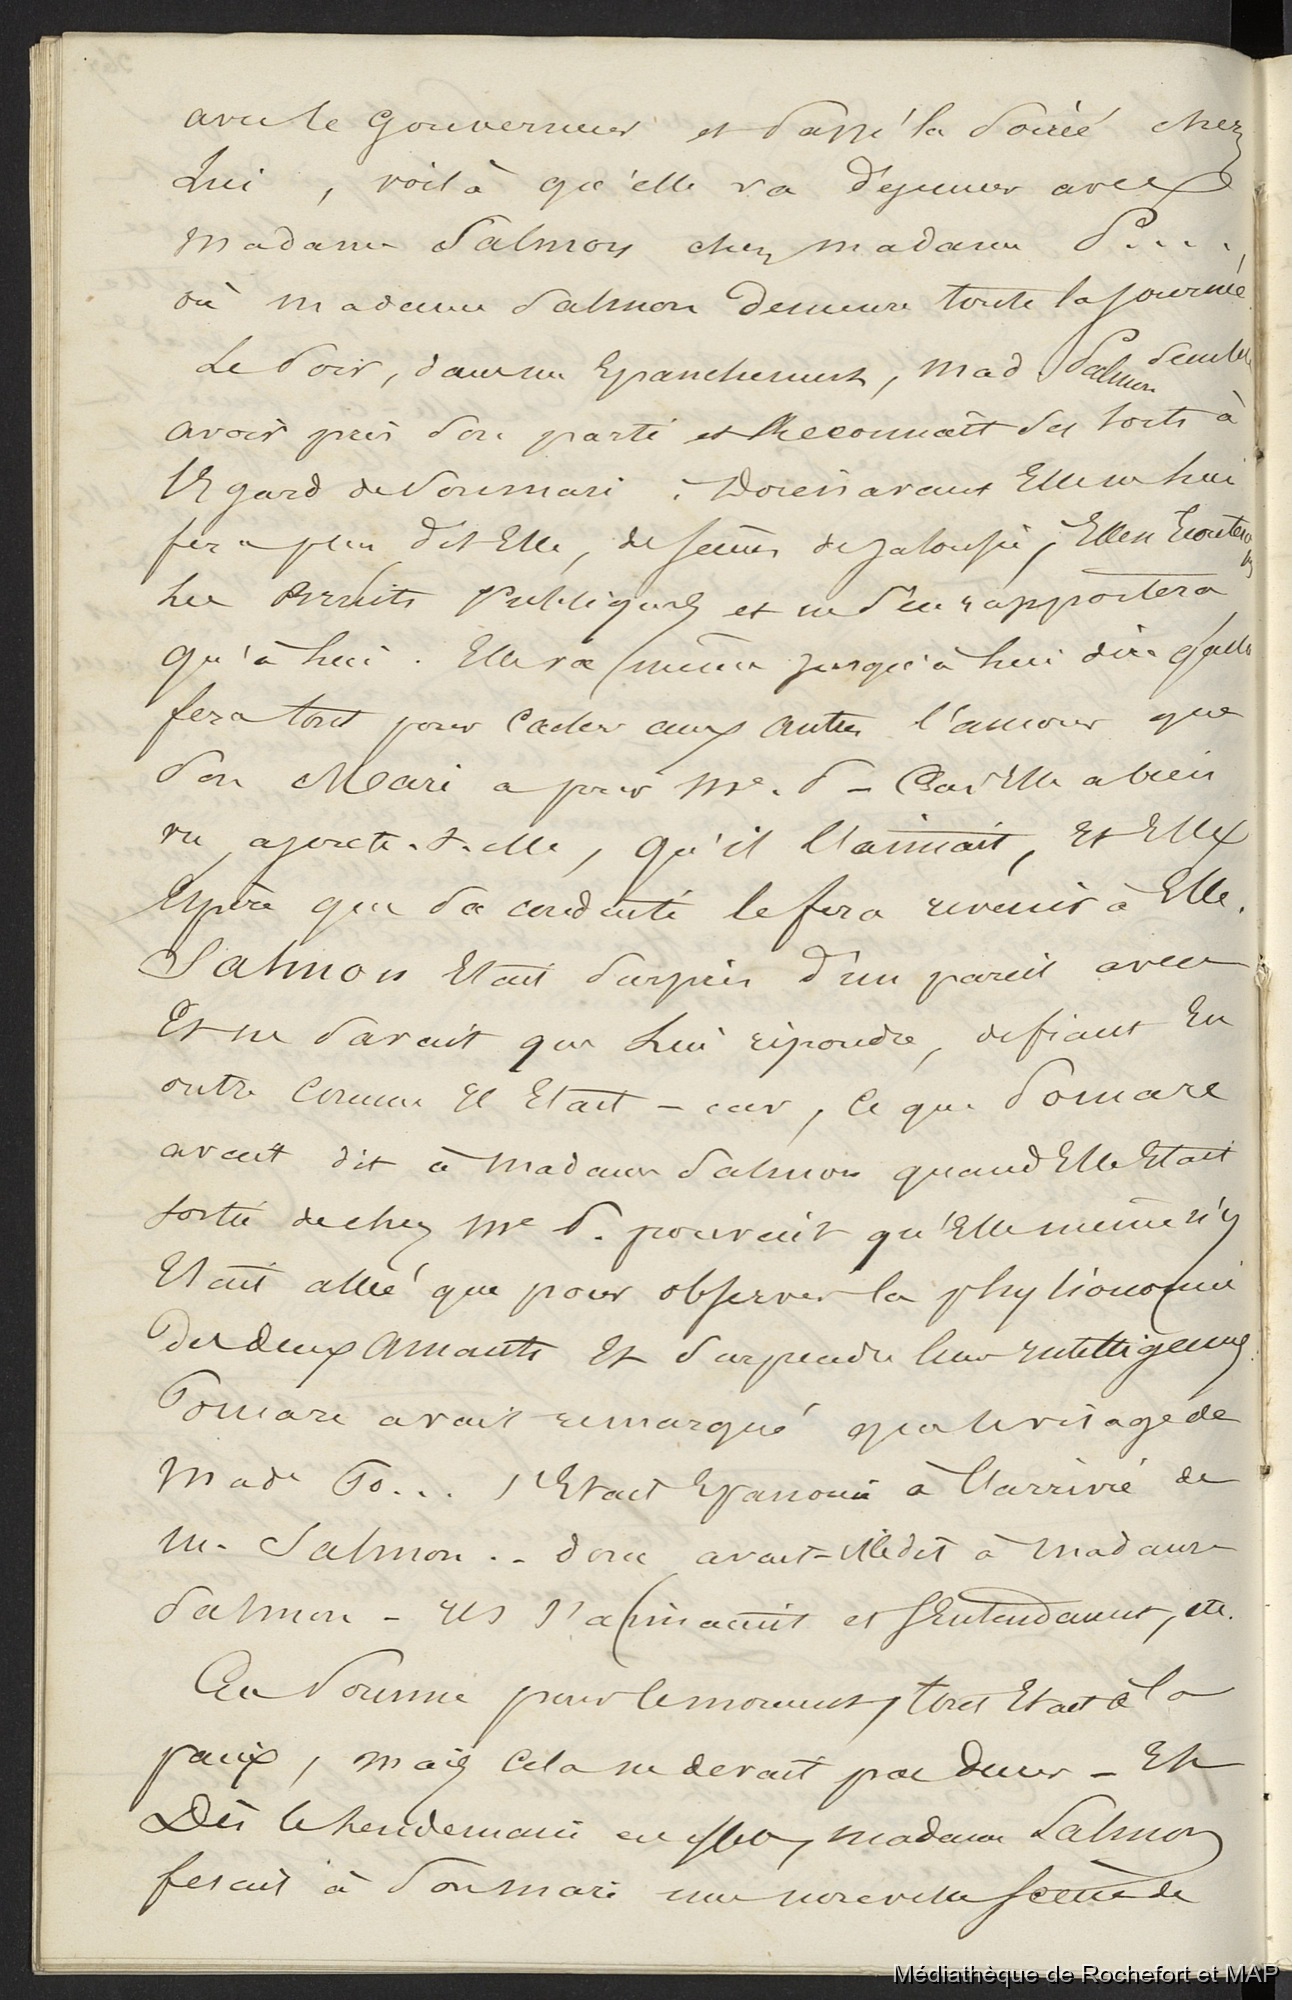 avec le Gouverneur et passé la soirée chez
Lui, voilà qu'elle va déjeuner avec
Madame Salmon chez madame P....,
où madame Salmon demeure toute la journée.
Le soir, dans un Epanchement, Mad. Salmon semble
avoir pris son parti et Reconnait ses torts à
l'Egard de son mari. Dorénavant Elle ne lui
fera plus dit Elle, de scènes de jalousie, Elle n'Ecoutera
les bruits Publiques et ne s'en rapportera
qu'à lui. Elle va même jusqu'à lui dire qu'elle
fera tout pour cacher aux autres l'amour que
son Mari a pour Me. P - Car Elle a bien
vu, ajoute-t-elle, qu'il l'aimait, Et Elle
Espère que sa conduite le fera revenir à Elle.
Salmon Etait surpris d'un pareil aveu
Et ne savait que lui répondre, défiant En
outre comme Il Etait - car, ce que Pomare
avait dit à Madame Salmon quand Elle Etait
sortie de chez Me P. prouvait qu'Elle même n'y
Etait allée que pour observer la physionomie
Des deux Amants Et surprendre leur Intelligence.
Pomare avait remarqué que le visage de
Made Po... s'Etait Epanoui à l'arrivée de
M. Salmon.. donc avait-Elle dit à Madame
Salmon - Ils s'aimaient et s'Entendaient, etc.
En somme pour le moment, tout Etait à la
paix, mais cela ne devait pas durer - Et
Dès le lendemain madame Salmon
fesait à son mari une nouvelle scène de
Médiathèque de Rochefort et MAP